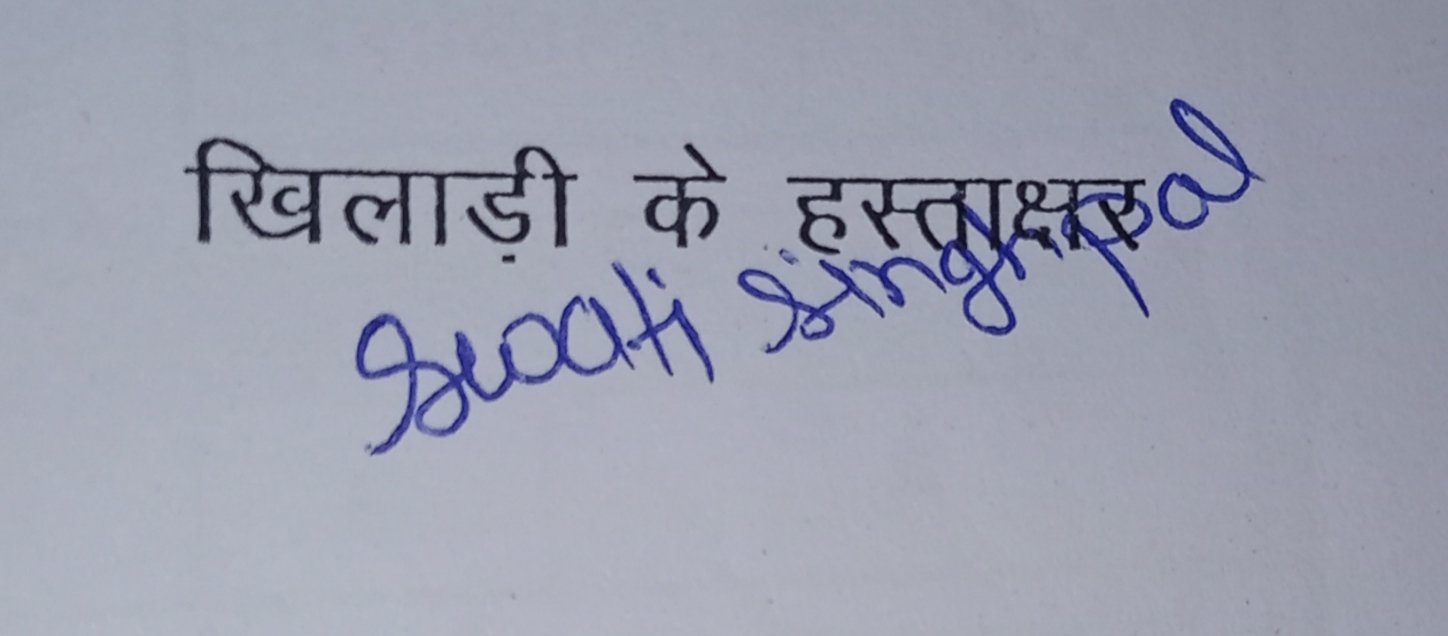 खिलाड़ी के हस्ताक्षर
Swati Singhal